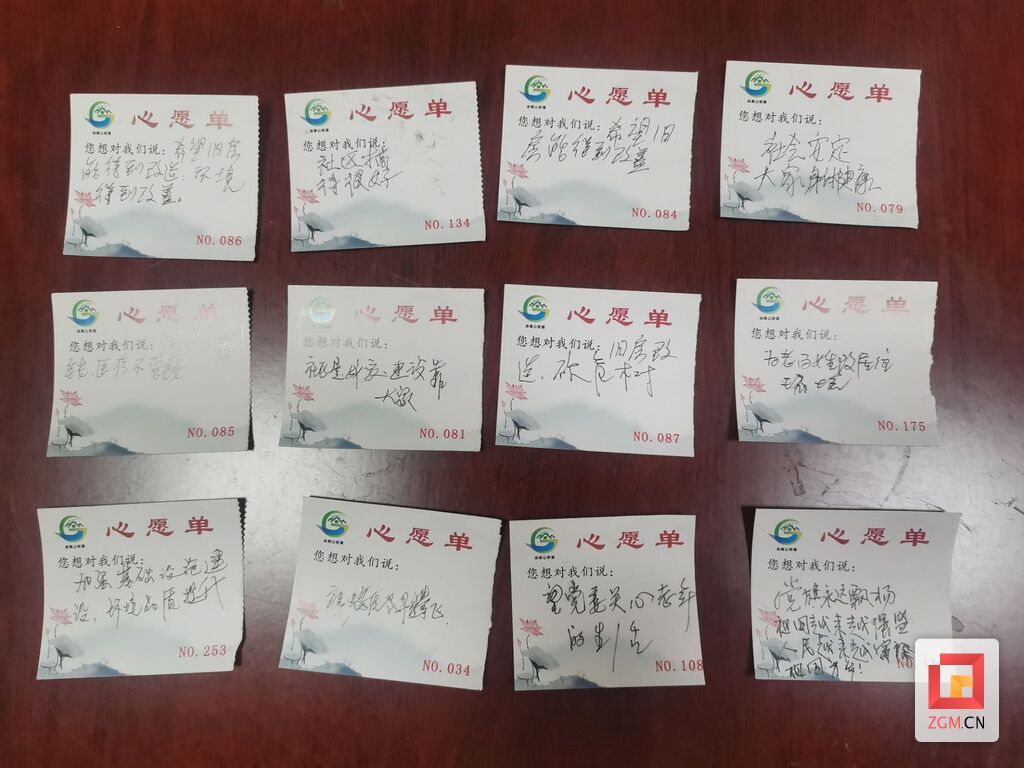 心愿单
您想对我们说:希望旧房
能得到改造.环境
得到改善。
NO.086
心愿单
您想对我们说:
社区搞
得很好
NO.134
心愿单
您想对我们说:希望旧
房能得到改善
NO.084
心愿单
您想对我们说:
社会安定
大家身体健康
NO.079
心愿单
您想对我们说:
NO.085
心愿单
您想对我们说:
建设靠
大家
NO.081
心愿单
您想对我们说:
旧房改
造、砍危树
NO.087
心愿单
您想对我们说:
NO.175
心愿单
您想对我们说:
加强基础设施建
设、环境品质提升
NO.253
心愿单
您想对我们说:
早腾飞
NO.034
心愿单
您想对我们说:
望党更关心老年
的生活
NO.108
心愿单
您想对我们说:
党旗永远飘扬
祖国越来越强盛
人民越来越富裕
祖国万岁!
ZGM.CN